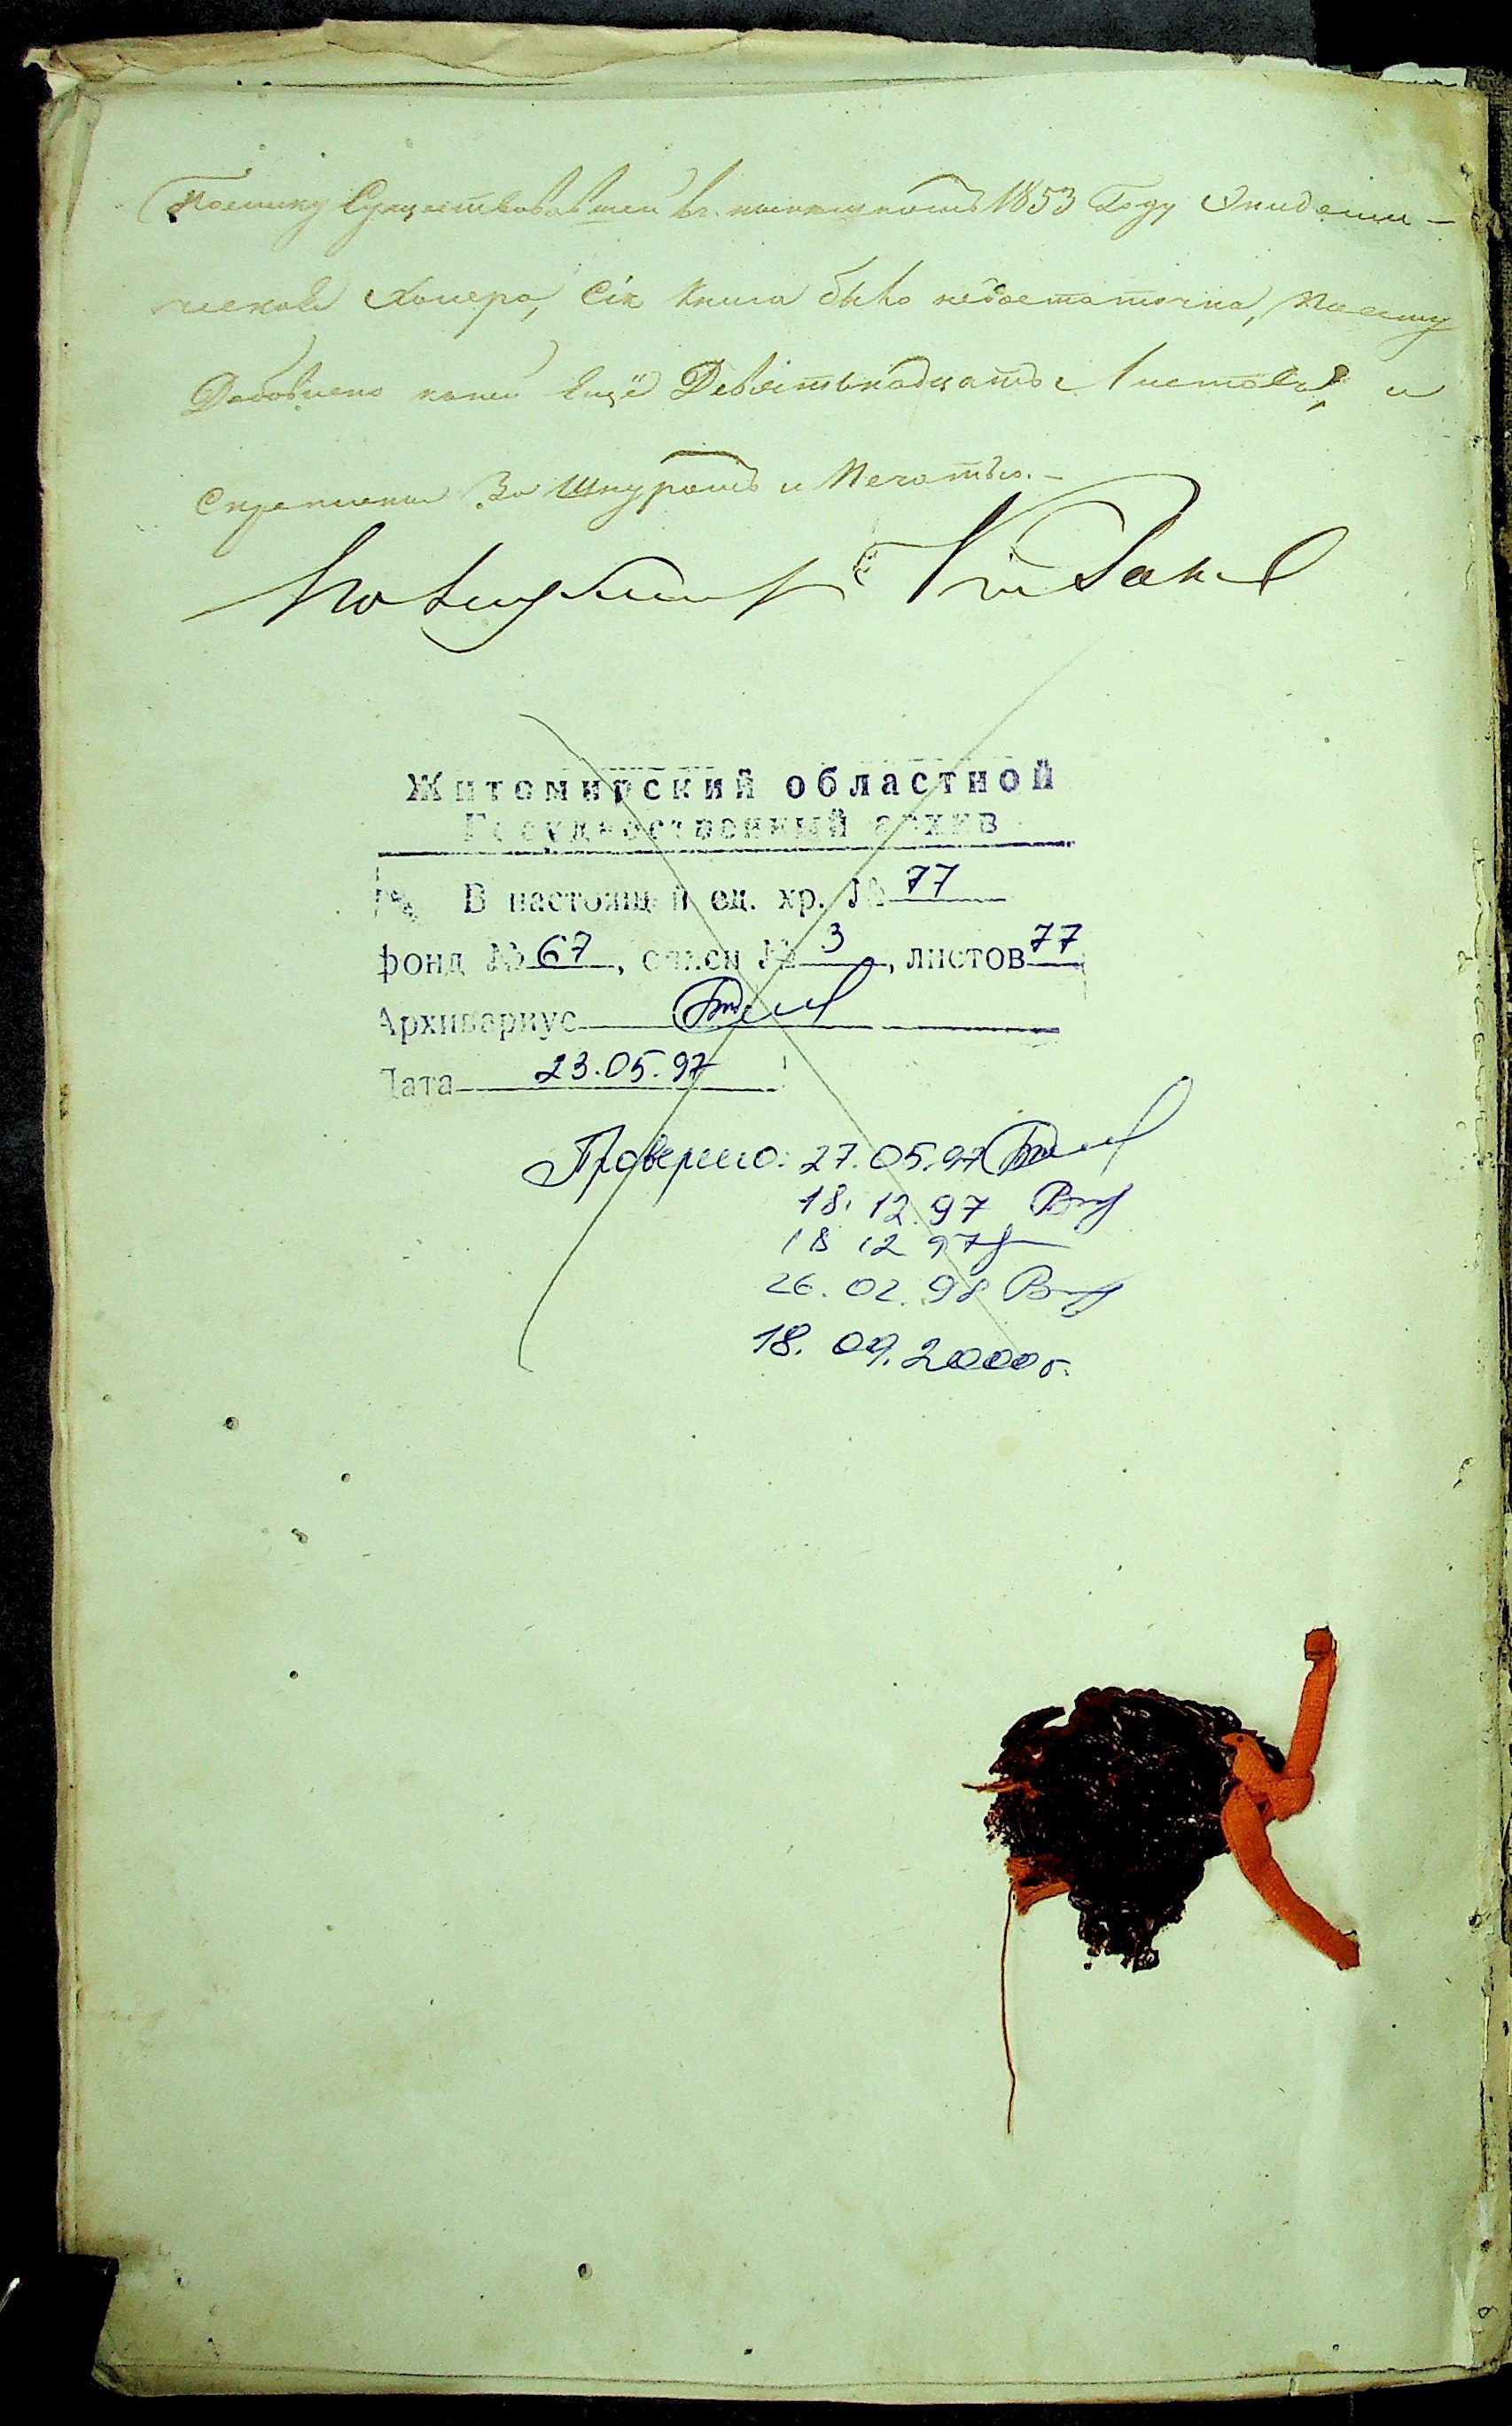 Поелику Существовавшей въ 1853 Году Эпидеми-
ческой Холеры, Сія Книга была недостаточна, Почему
Добавлено къ ней Ещё Девятьнадцать Листовъ, и
Скреплены За Шнуромъ и Печатью.-
Житомирский областной
Государственный архив
В настоящей ед. хр. № 77
фонд № 67, описи № 3, листов 77
Архивариус
Дата 23.05.97
Проверено: 27.05.97
18.12.97
18 12 97
26.02.98
18.09.2000г.